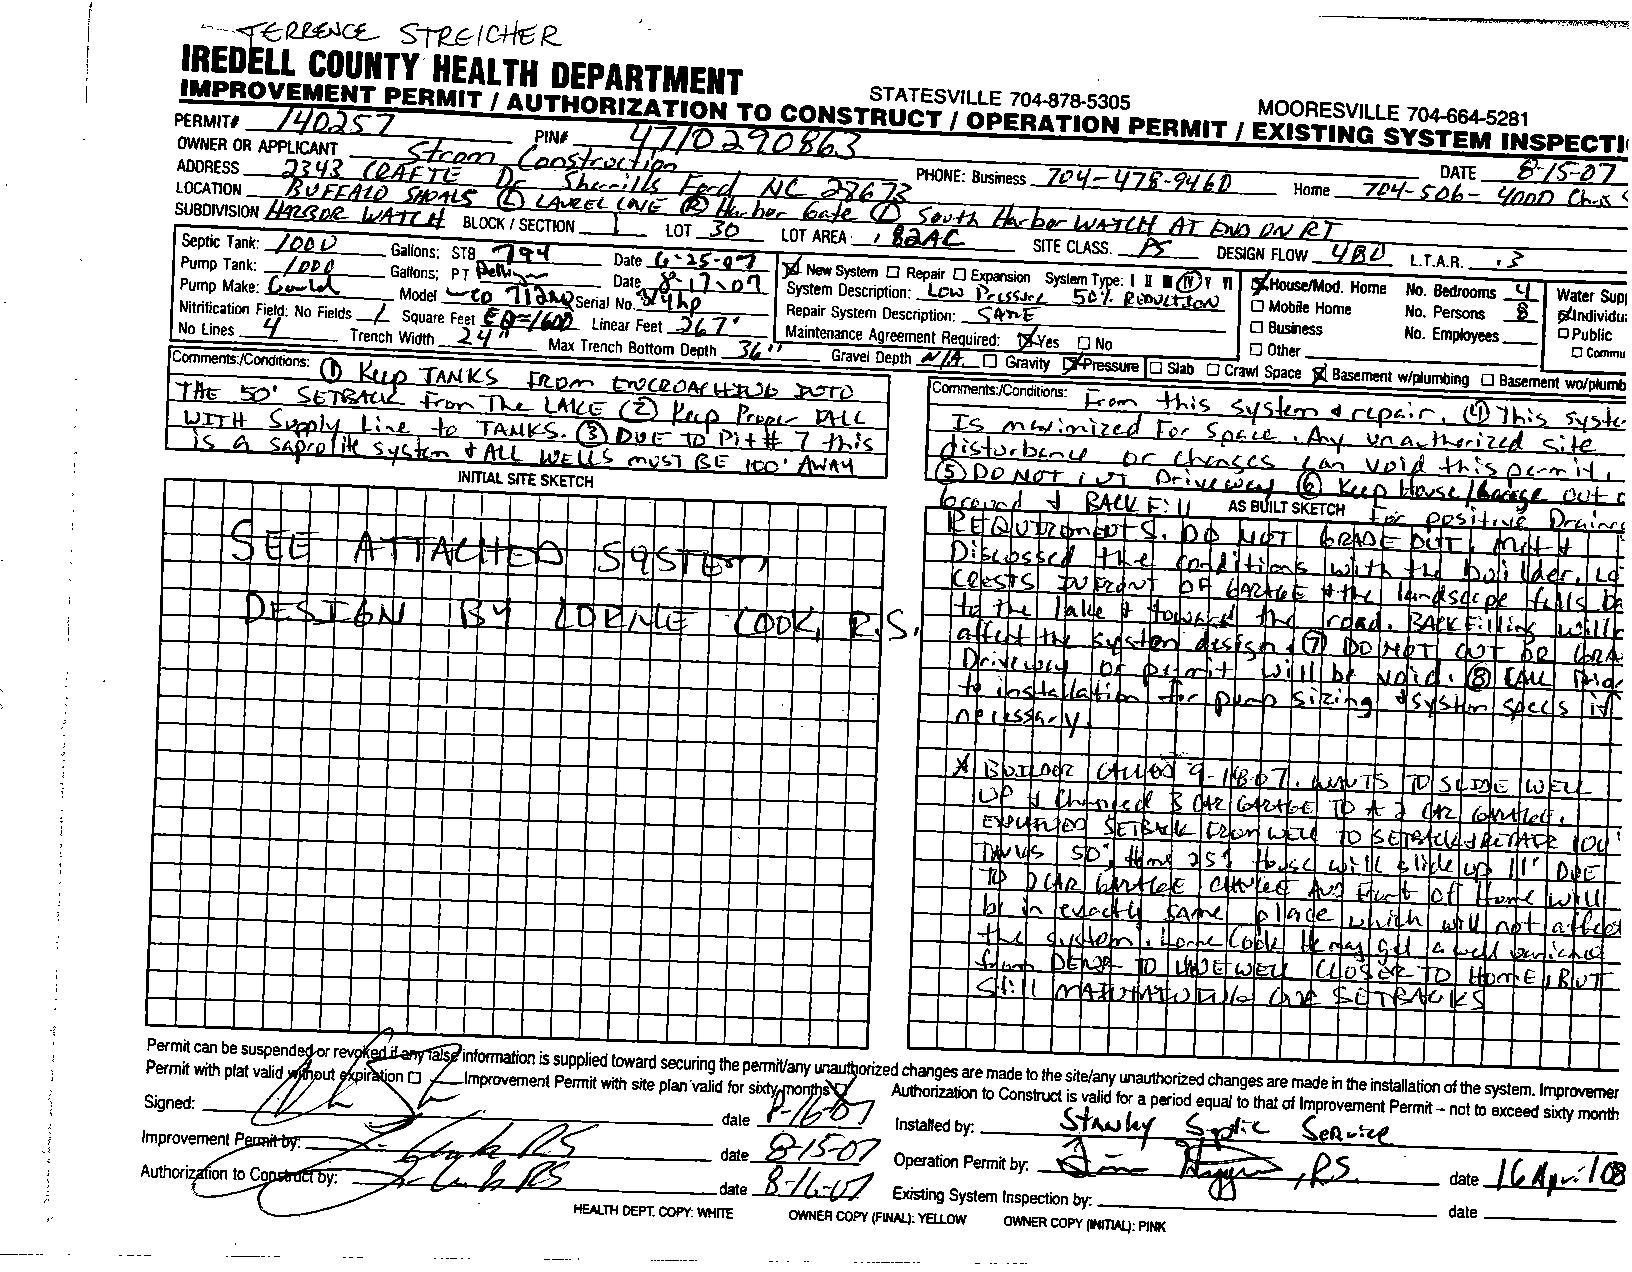 TERRENCE STREICHER
IREDELL COUNTY HEALTH DEPARTMENT
STATESVILLE 704-878-5305 MOORESVILLE 704-664-5281
IMPROVEMENT PERMIT / AUTHORIZATION TO CONSTRUCT / OPERATION PERMIT / EXISTING SYSTEM INSPECTI
PERMIT# 140257 PIN# 4710290863
OWNER OR APPLICANT Strom Construction DATE 8-15-07
ADDRESS 2343 CRAFTE DR Sherrills Ford NC 28673 PHONE: Business 704-478-9460 Home 704-506-4000
LOCATION BUFFALO SHOALS (L) LAUREL COVE (R) Harbor Gate (L) South Harbor WATCH AT END ON RT
SUBDIVISION HARBOR WATCH BLOCK / SECTION 1 LOT 30 LOT AREA .82AC SITE CLASS. PS DESIGN FLOW 4BD L.T.A.R. .3
Septic Tank: 1000 Gallons: STB 794 Date 6-25-07
Pump Tank: 1000 Gallons; PT Date 8-17-07
Pump Make: Gould Model Serial No. 3/4hp
Nitrification Field: No Fields 1 Square Feet EQ=1600 Linear Feet 267'
No Lines 4 Trench Width 24" Max Trench Bottom Depth 36" Gravel Depth N/A ☐ Gravity ☒ Pressure
☒ New System ☐ Repair ☐ Expansion System Type: I II III IV V VI
System Description: Low Pressure 50% REDUCTION
Repair System Description: SAME
Maintenance Agreement Required: ☒ Yes ☐ No
☒ House/Mod. Home No. Bedrooms 4
☐ Mobile Home No. Persons 8
☐ Business No. Employees
☐ Other
Water Supp
☒ Individu
☐ Public
☐ Commu
☐ Slab ☐ Crawl Space ☒ Basement w/plumbing ☐ Basement wo/plumb
Comments:/Conditions: (1) Keep TANKS FROM ENCROACHING INTO
THE 50' SETBACK From The LAKE (2) Keep Proper FALL
WITH Supply Line to TANKS. (3) DUE TO Pit # 7 this
is a saprolite system & ALL WELLS MUST BE 100' AWAY
Comments:/Conditions: From this system & repair. (4) This syste
Is maximized For Space. Any unauthorized site
disturbance or changes can void this permit.
(5) DO NOT CUT Driveway (6) Keep House/Garage out o
Ground & BACKFill For positive Draina
INITIAL SITE SKETCH
SEE ATTACHED SYSTEM
DESIGN BY LORNE COOK, R.S.
AS BUILT SKETCH
REQUIREMENTS. DO NOT GRADE OUT. Met &
Discussed the conditions with the builder. Lo
CRESTS IN FRONT OF GARAGE & the landscape falls ba
to the lake & toward the road. BACKFilling will
affect the system design. (7) DO NOT CUT OR GRA
Driveway or permit will be void. (8) CALL Prio
to installation for pump sizing & system specs if
necessary.
* BUILDER CALLED 9-18-07. WANTS TO SLIDE WELL
UP & Changed 3 CAR GARAGE TO A 2 CAR GARAGE.
EXPLAINED SETBACK FROM WELL TO 100'
TANKS 50', Home 25'. House will slide up 11' DUE
TO 2 CAR GARAGE CHANGE AND Front of Home will
be in exactly same place which will not affect
the system. Lorne Cook He may get a well variance
from DENR TO HAVE WELL CLOSER TO HOME, BUT
Still MAINTAINING OUR SETBACKS
Permit can be suspended or revoked if any false information is supplied toward securing the permit/any unauthorized changes are made to the site/any unauthorized changes are made in the installation of the system. Improvemer
Permit with plat valid without expiration ☐ Improvement Permit with site plan valid for sixty months ☑ Authorization to Construct is valid for a period equal to that of Improvement Permit – not to exceed sixty month
Signed: date 8-16-07
Installed by: Stanley Septic Service
Improvement Permit by: RS date 8-15-07
Operation Permit by: , RS. date 16 April 08
Authorization to Construct by: RS date 8-16-07
Existing System Inspection by: date
HEALTH DEPT. COPY: WHITE OWNER COPY (FINAL): YELLOW OWNER COPY (INITIAL): PINK